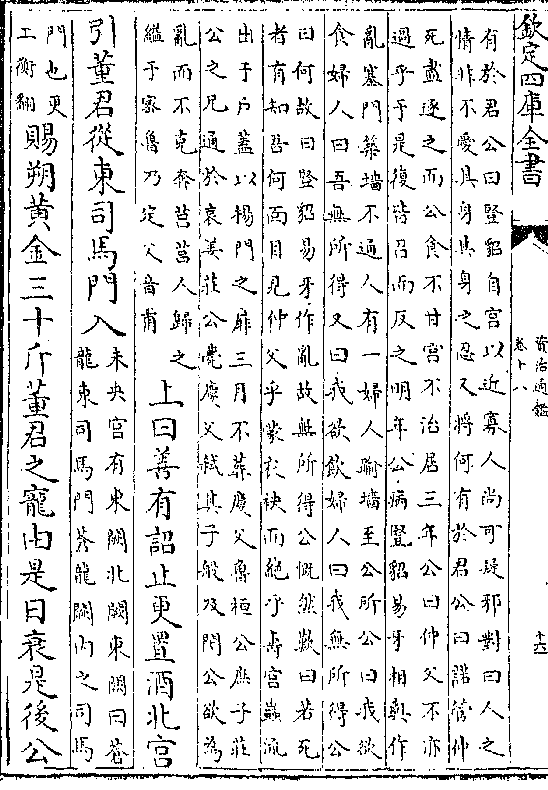 欽定四庫全書
資治通鑑
卷十八
十六
有於君公曰豎貂自宮以近寡人尚可疑邪對曰人之
情非不愛其身其身之忍又將何有於君公曰諾管仲
死盡逐之而公食不甘宮不治居三年公曰仲父不亦
過乎于是復皆召而反之明年公病豎貂易牙相與作
亂塞門築墻不通人有一婦人踰墻至公所公曰我欲
食婦人曰吾無所得又曰我欲飲婦人曰我無所得公
曰何故曰豎貂易牙作亂故無所得公慨然歎曰若死
者有知吾何面目見仲父乎蒙衣袂而絶乎壽宮蟲流
出于戶蓋以楊門之扉三月不葬慶父魯桓公庶子莊
公之兄通於哀姜莊公薨慶父弑其子般及閔公欲為
亂而不克奔莒莒人歸之
繼于家魯乃定父音甫
上曰善有詔止更置酒北宮
引董君從東司馬門入
未央宮有東闕北闕東闕曰蒼
龍東司馬門蒼龍闕内之司馬
門也更
工衡翻
賜朔黄金三十斤董君之寵由是日衰是後公